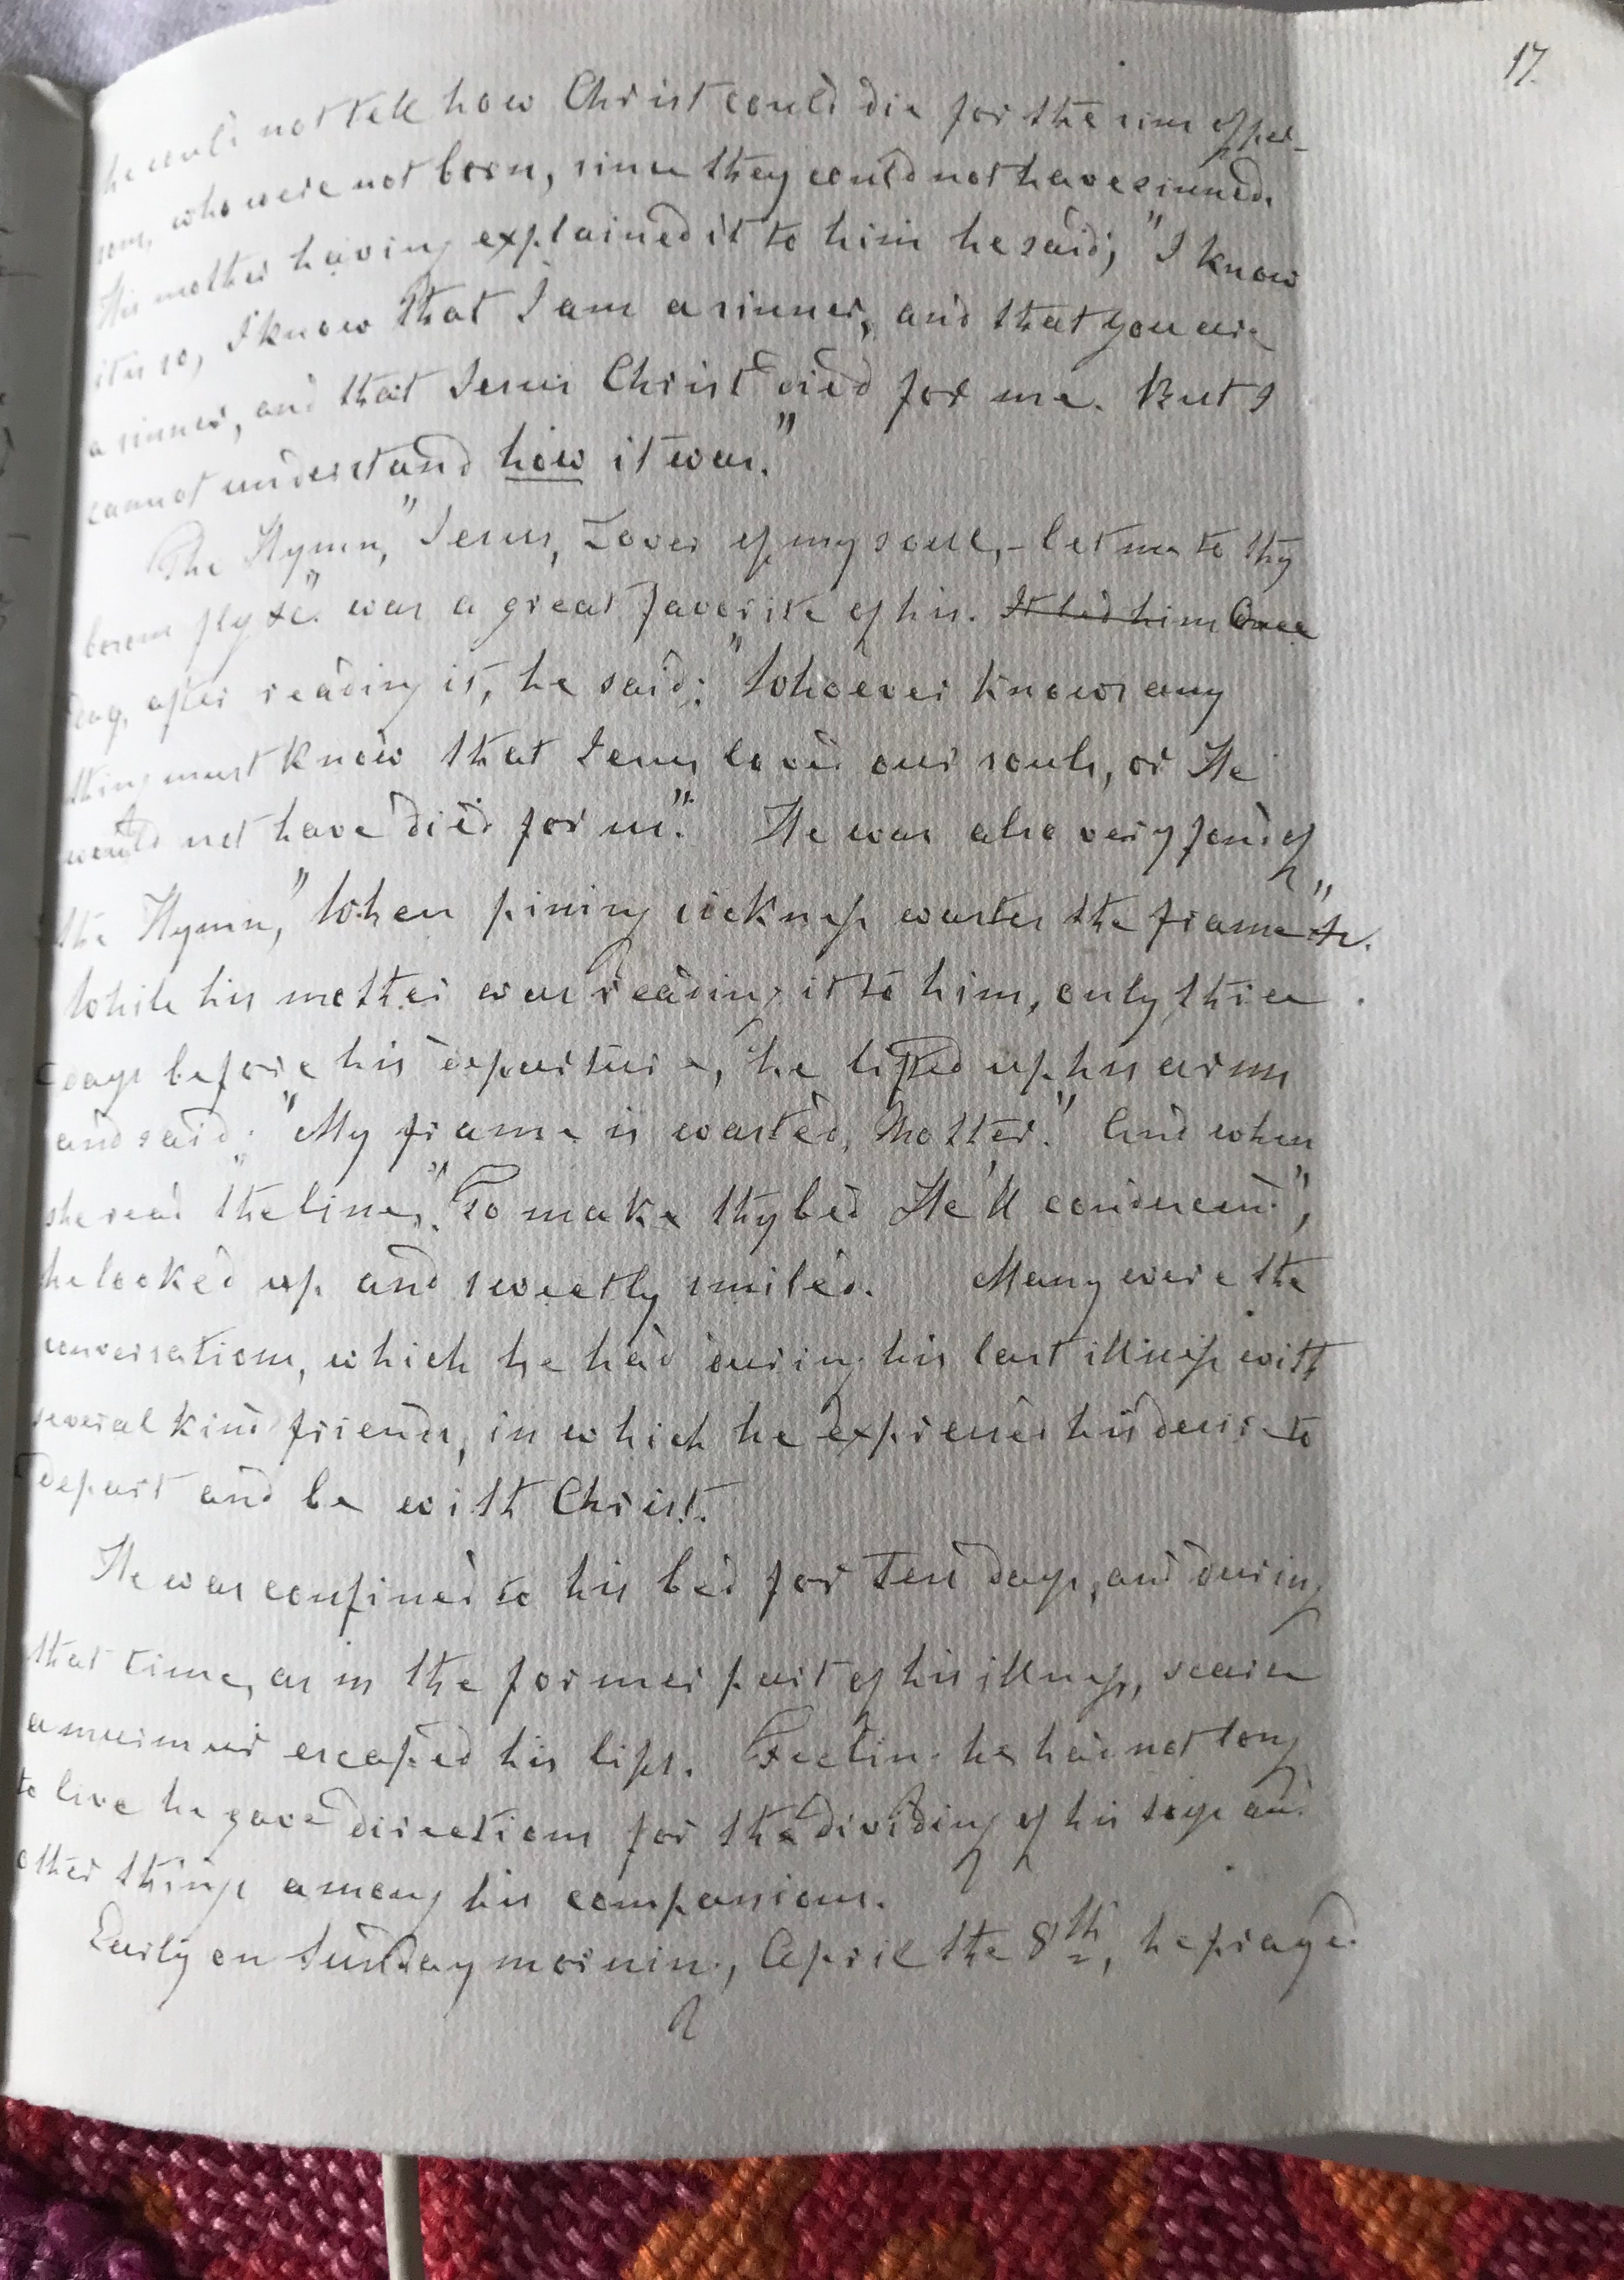 17.
he could not tell how Christ could die for the sins of per-
sons, who were not born, since they could not have sinned.
His mother having explained it to him he said; "I know
it is so, I know that I am a sinner, and that you are
a sinner, and that Jesus Christ died for me. But I
cannot understand how it was."
The Hymn, "Jesus, Lover of my soul, - let me to thy
bosom fly &c." was a great favorite of his. It led him Once
day, after reading it, he said: "Whoever knows any
thing must know that Jesus loved our souls, or He
would not have died for us." He was also very fond of
the Hymn, "When pining sickness wastes the frame" &c.
While his mother was reading it to him, only three
days before his departure, he lifted up his arms
and said: "My frame is wasted, Mother." And when
she read the line, "To make thy bed He'll condescend",
he looked up and sweetly smiled. Many were the
conversations, which he had during his last illness with
several kind friends, in which he expressed his desire to
depart and be with Christ.
He was confined to his bed for ten days, and during
that time, as in the former part of his illness, scarce
a murmur escaped his lips. Feeling he had not long
to live he gave directions for the dividing of his toys and
other things among his companions.
Early on Sunday morning, April the 8th, he prayed